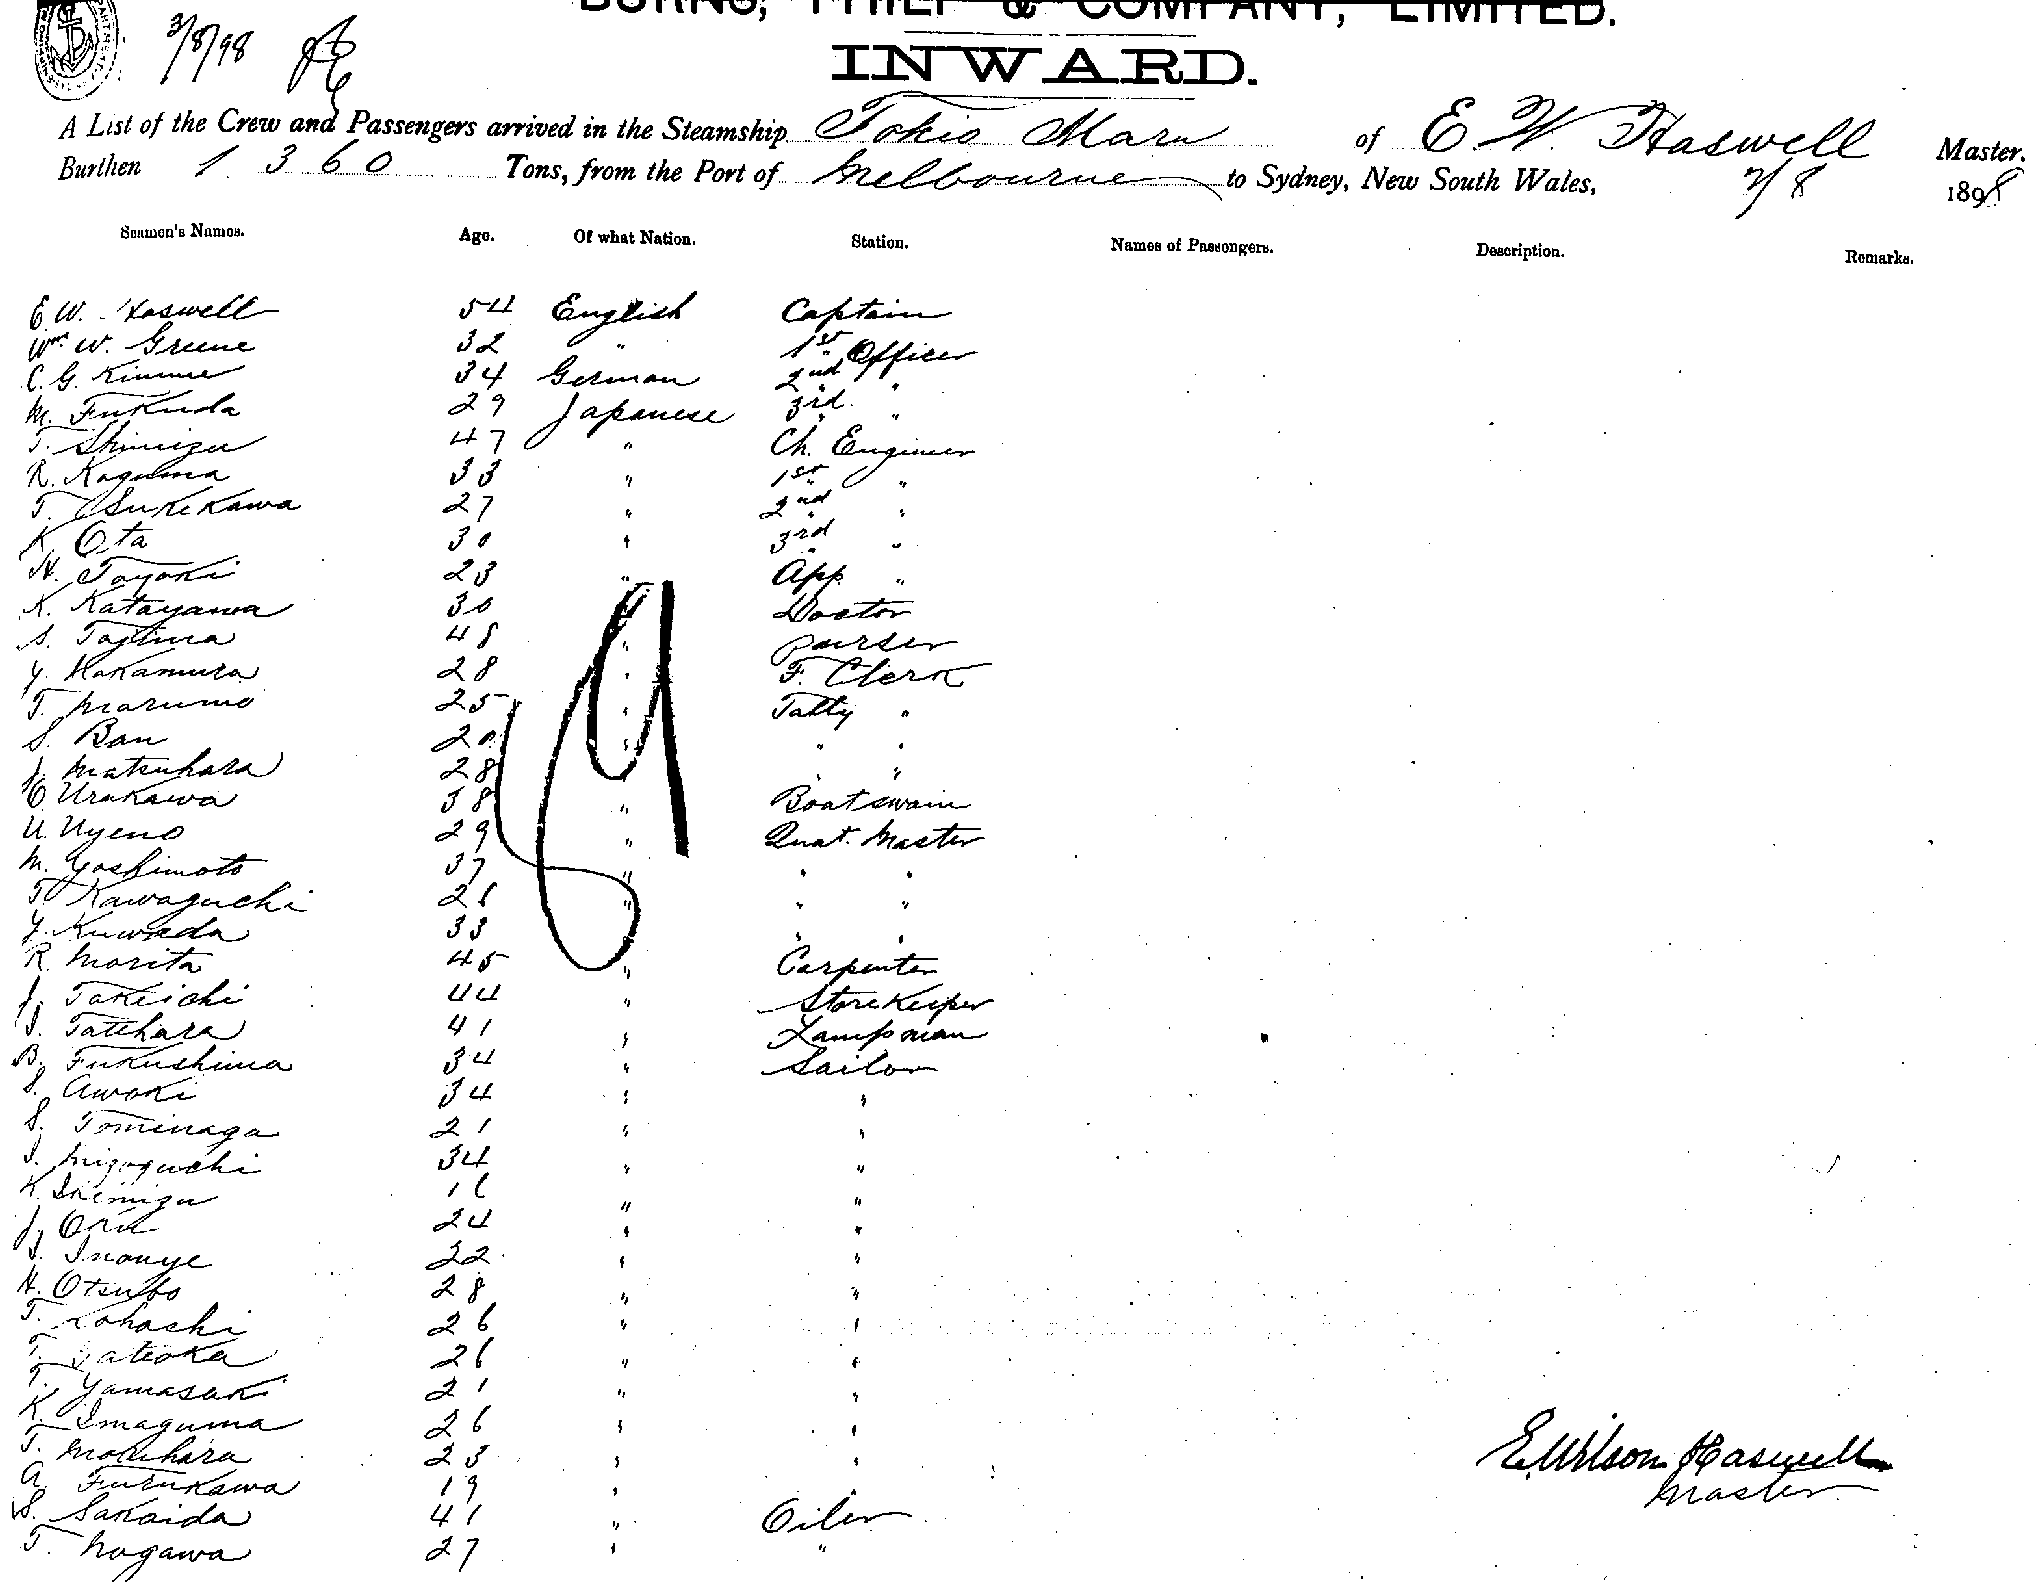 BURNS, PHILP & COMPANY, LIMITED.
3/8/98
INWARD.
A List of the Crew and Passengers arrived in the Steamship Tokio Maru of E W. Haswell Master.
Burthen 1360 Tons, from the Port of Melbourne to Sydney, New South Wales, 2/8 1898
Seamen's Names. Age. Of what Nation. Station. Names of Passengers. Description. Remarks.
E. W. Haswell 54 English Captain
Wm W. Greene 32 " 1st Officer
C. G. Kimme 34 German 2nd "
M. Fukuda 29 Japanese 3rd "
T. Shimizu 47 " Ch. Engineer
R. Kaguma 33 " 1st "
T. Tsukekawa 27 " 2nd "
K. Ota 30 " 3rd "
H. Toyoki 23 " App. "
K. Katayama 30 " Doctor
S. Tajima 48 " Purser
Y. Nakamura 28 " F. Clerk
T. Marumo 25 " Tally "
S. Ban 20 " " "
J. Matsuhara 28 " " "
O. Urakawa 38 " Boatswain
U. Uyeno 29 " Quat. Master
M. Yoshimoto 37 " " "
T. Kawaguchi 26 " " "
Y. Kuwada 33 " " "
R. Morita 45 " Carpenter
J. Takeichi 44 " Storekeeper
I. Tatehara 41 " Lampman
B. Fukushima 34 " Sailor
S. Awoki 34 " "
S. Tominaga 21 " "
I. Mizoguchi 34 " "
K. Shemizu 16 " "
J. Oru 24 " "
I. Inouye 22 " "
H. Otsubo 28 " "
T. Kohashi 26 " "
T. Tateoka 26 " "
T. Yamasaki 21 " "
K. Imaguma 26 " "
T. Morihara 23 " "
A. Furukawa 19 " "
S. Sakaida 41 " Oiler
T. Nogawa 27 " "
E. Wilson Haswell
Master